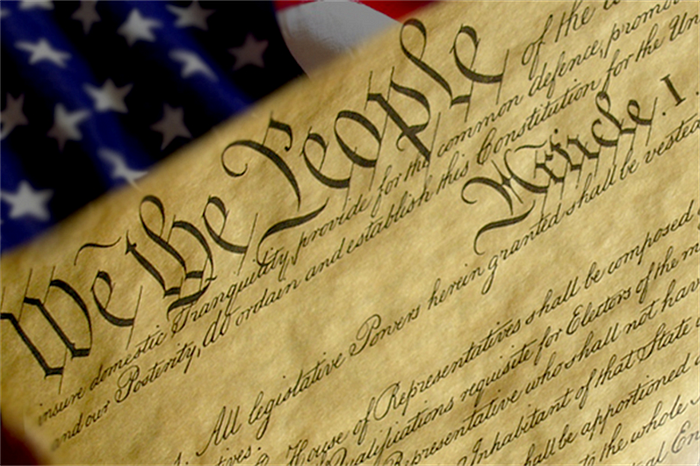 We the People of the
insure domestic Tranquility, provide for the common defence, promo
and our Posterity, do ordain and establish this Constitution for the Un
Article . I .
. All legislative Powers herein granted shall be vested
House of Representatives shall be composed
Qualifications requisite for Electors of the m
Representative who shall not hav
Inhabitant of that State
shall be apportioned
to the whole